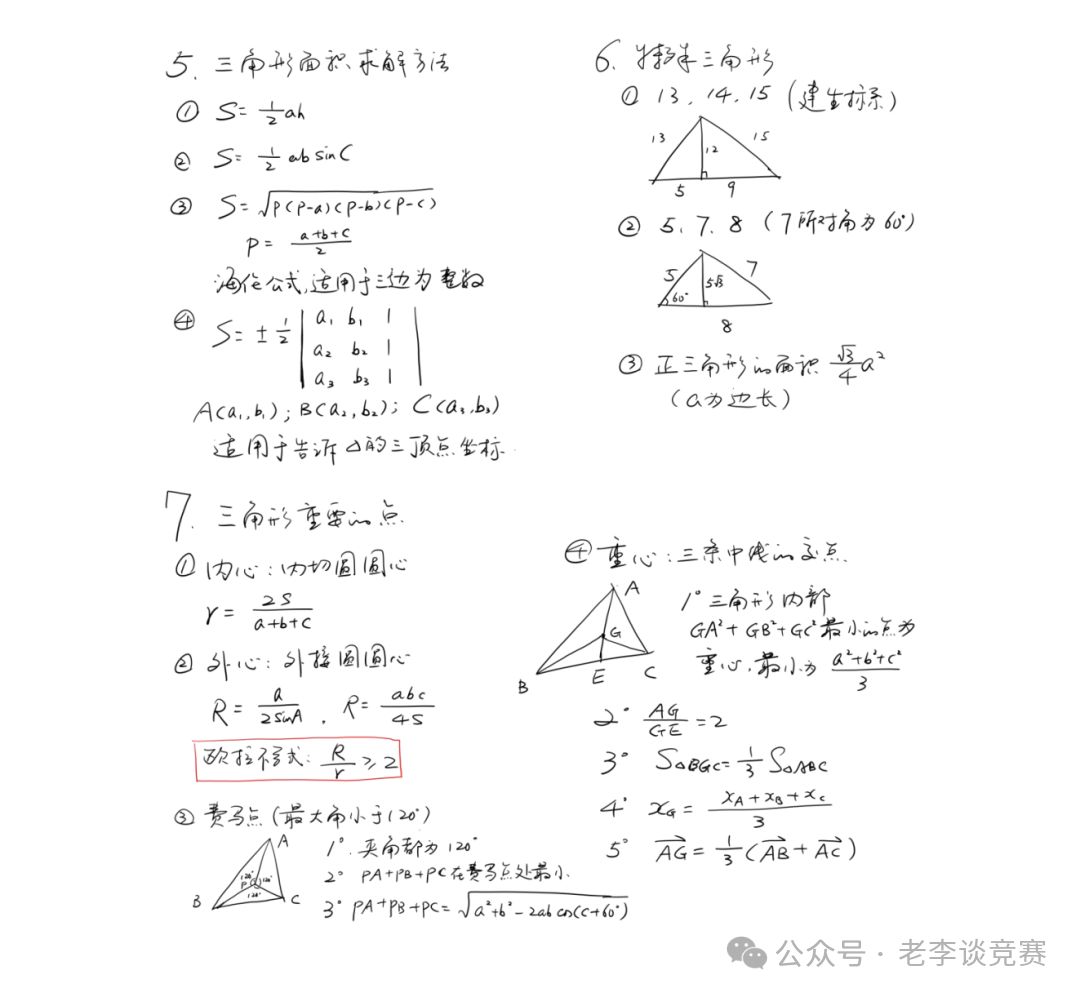 5. 三角形面积求解方法
① S=½ah
② S=½absinC
③ S=√(P(P-a)(P-b)(P-c))
P=(a+b+c)/2
海伦公式,适用于三边为整数
④ S=±½|a₁ b₁ 1|
|a₂ b₂ 1|
|a₃ b₃ 1|
A(a₁,b₁); B(a₂,b₂); C(a₃,b₃)
适用于告诉△的三顶点坐标.
6. 特殊三角形
① 13, 14, 15 (建坐标系)
13 15
12
5 9
② 5、7、8 (7所对角为60°)
5 5√3 7
60°
8
③ 正三角形的面积 (√3/4)a²
(a为边长)
7. 三角形重要的点
① 内心:内切圆圆心
r=2S/(a+b+c)
② 外心:外接圆圆心
R=a/(2sinA), R=abc/(4S)
欧拉不等式: R/r≥2
③ 费马点(最大角小于120°)
A
120° P 120°
120°
B C
1°. 夹角都为120°
2° PA+PB+PC在费马点处最小
3° PA+PB+PC=√(a²+b²-2abcos(C+60°))
④ 重心:三条中线的交点
A
G
B E C
1° 三角形内部
GA²+GB²+GC²最小的点为
重心,最小为 (a²+b²+c²)/3
2° AG/GE=2
3° S△BGC=⅓S△ABC
4° x_G=(x_A+x_B+x_C)/3
5° A⃗G⃗=⅓(A⃗B⃗+A⃗C⃗)
公众号·老李谈竞赛